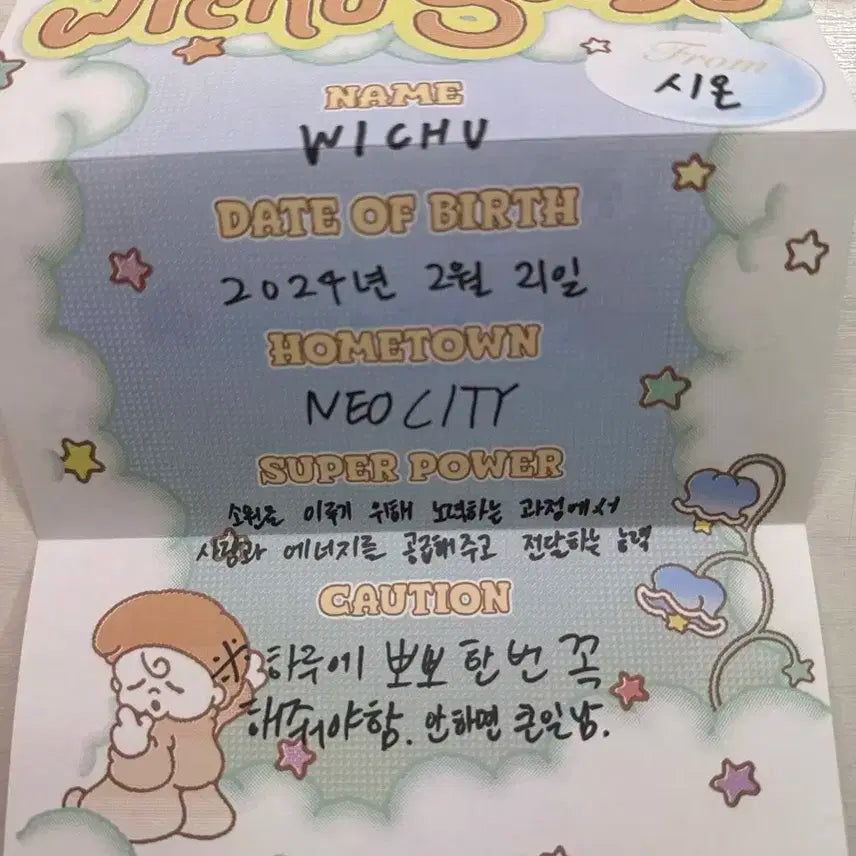 From
시온
NAME
WICHU
DATE OF BIRTH
2024년 2월 21일
HOMETOWN
NEO CITY
SUPER POWER
소원을 이루기 위해 노력하는 과정에서
사랑과 에너지를 공급해주고 전달하는 능력
CAUTION
※ 하루에 뽀뽀 한번 꼭
해줘야함. 안하면 큰일남.